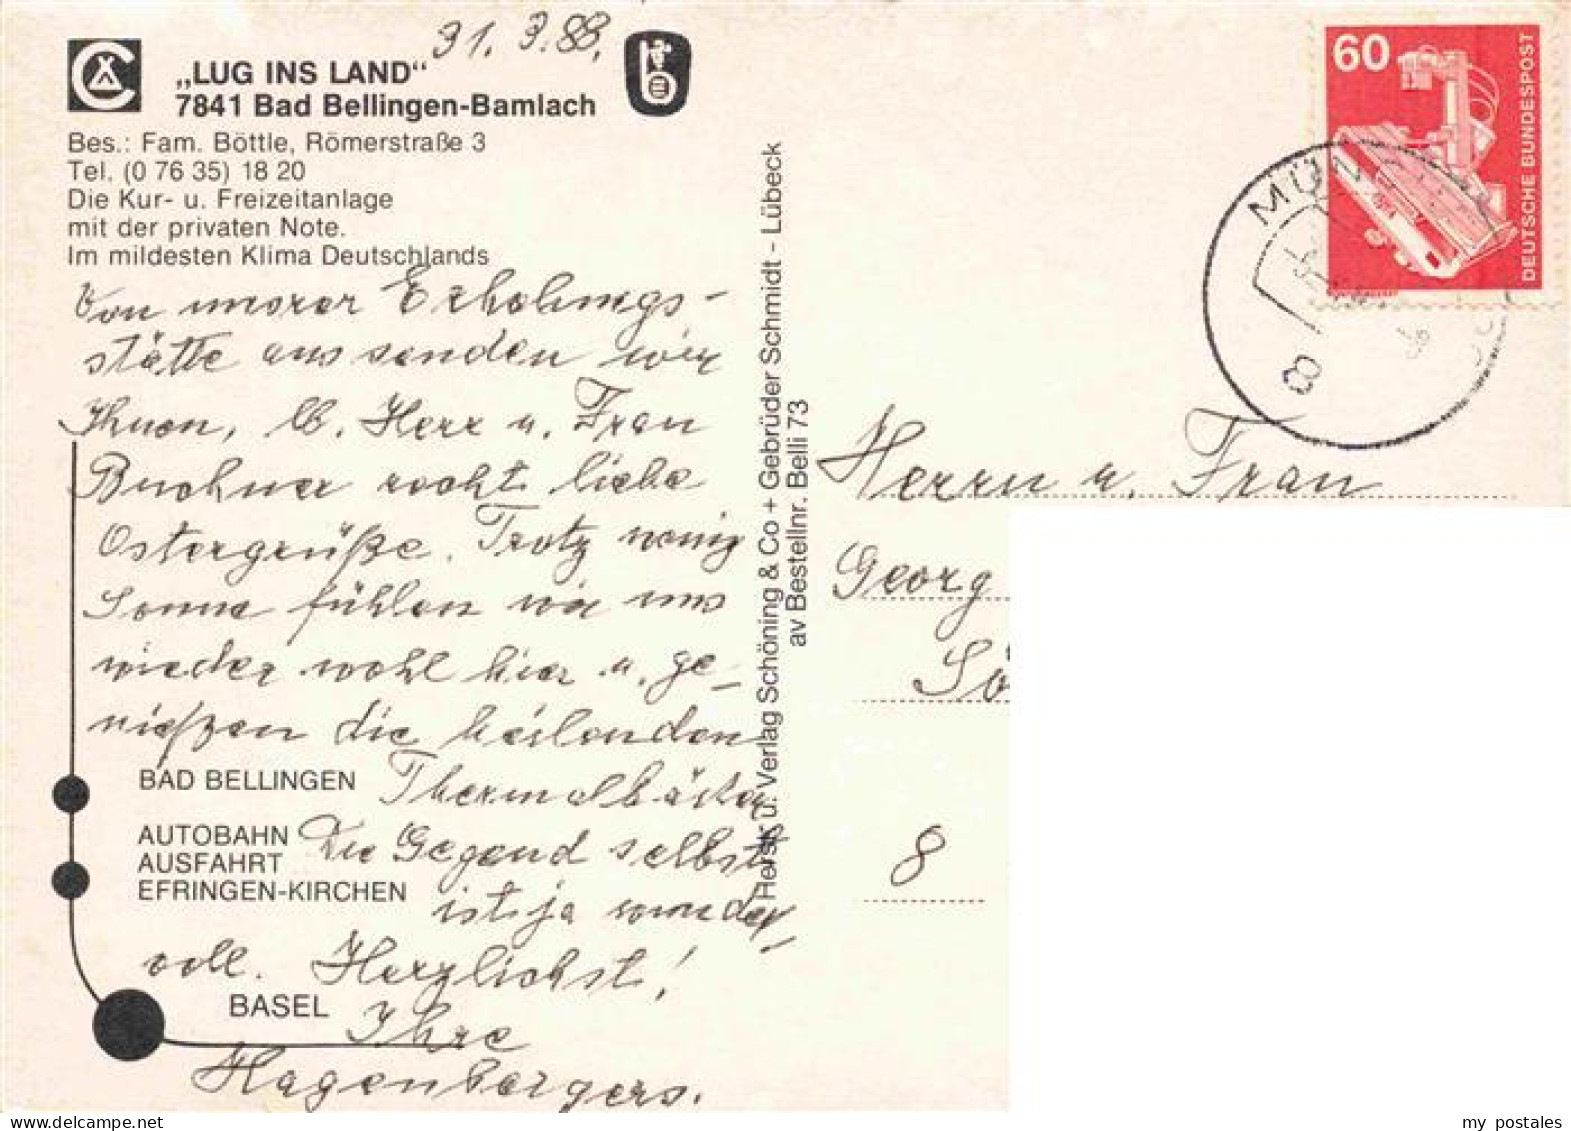 31. 3. 88.
„LUG INS LAND“
7841 Bad Bellingen-Bamlach
Bes.: Fam. Böttle, Römerstraße 3
Tel. (0 76 35) 18 20
Die Kur- u. Freizeitanlage
mit der privaten Note.
Im mildesten Klima Deutschlands
Von unserer Erholungs-
stätte aus senden wir
Ihnen, lb. Herr u. Frau
Buchner recht liebe
Ostergrüße. Trotz wenig
Sonne fühlen wir uns
wieder wohl hier u. ge-
nießen die heilenden
BAD BELLINGEN
Thermalbäder
AUTOBAHN
AUSFAHRT
EFRINGEN-KIRCHEN
Die Gegend selbst
ist ja wunder-
voll. Herzlichst!
BASEL
Ihre
Hagenbergers.
Herst. u. Verlag Schöning & Co + Gebrüder Schmidt - Lübeck
av Bestellnr. Belli 73
60
DEUTSCHE BUNDESPOST
8
Herrn u. Frau
Georg
Sö
8
my postales